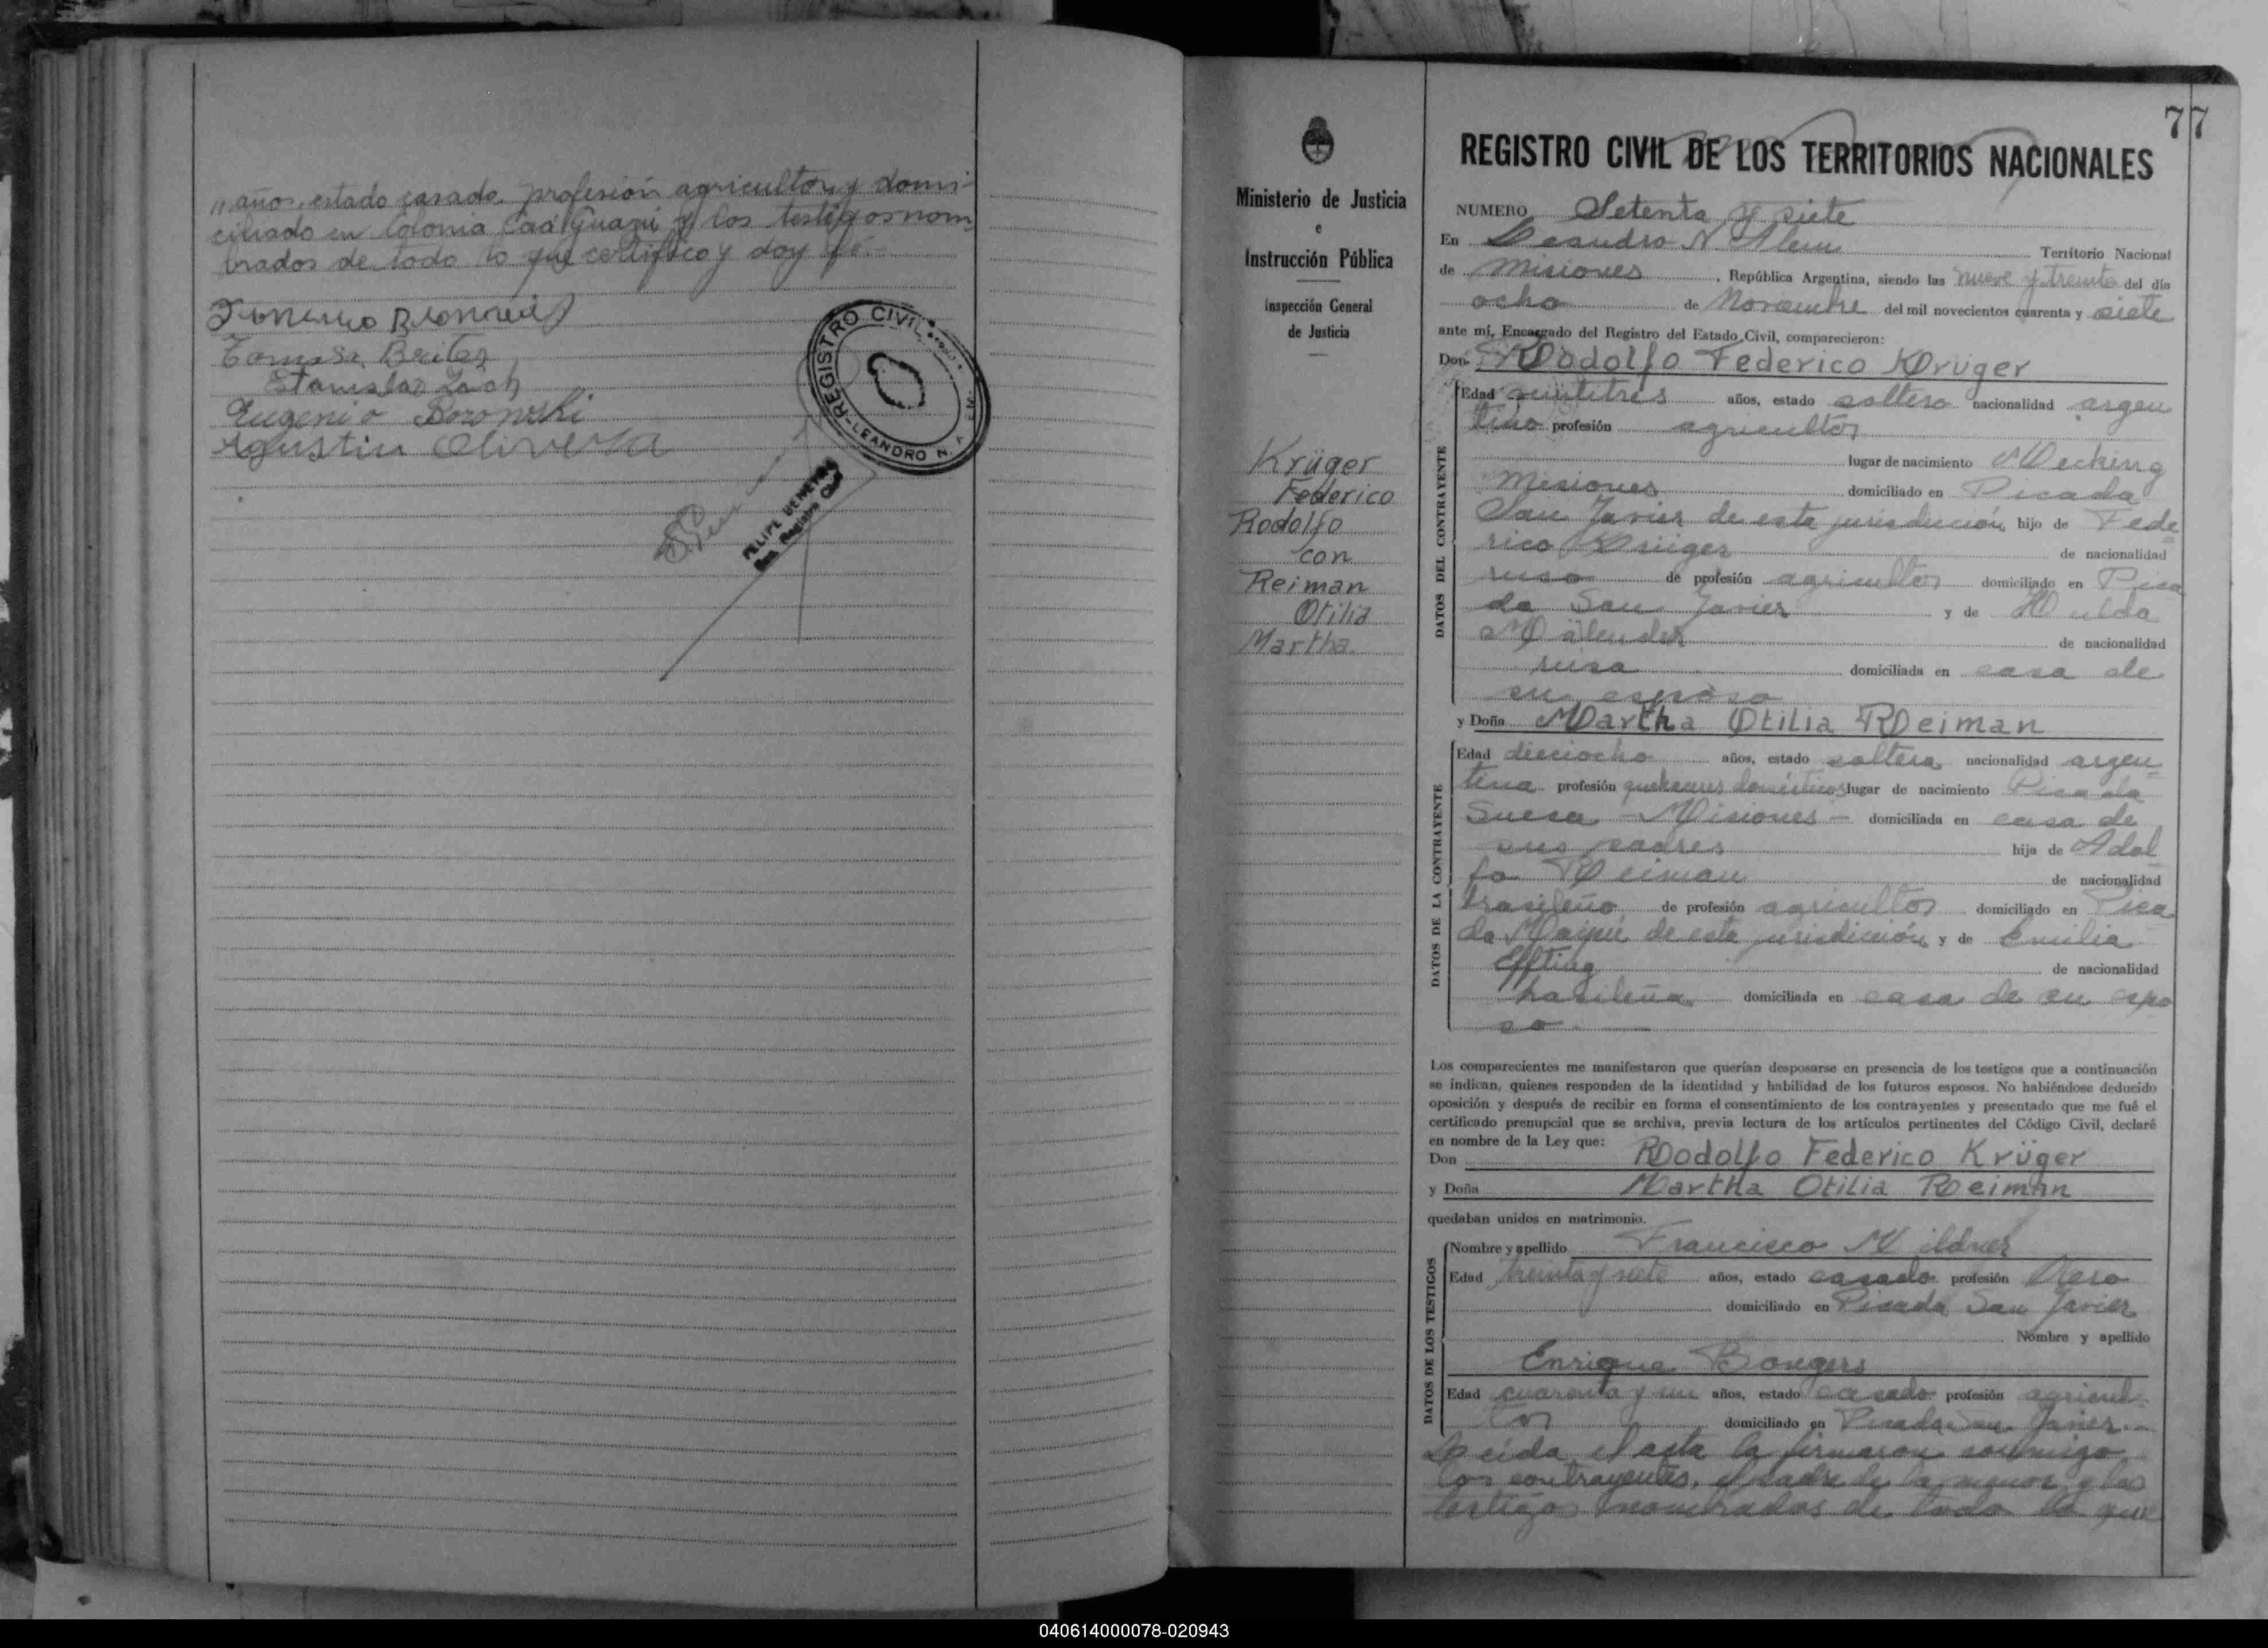 " años, estado casado, profesión agricultor y domi-
ciliado en Colonia Caá Guazú y los testigos nom
brados de todo lo que certifico y doy fé.-
Tomasa Beitez
Estanislao Zach
Eugenio Borowski
Agustin Olivera
REGISTRO CIVIL
LEANDRO N. ALEM
FELIPE BENEVEZ
Enc. Registro Civil
77
Ministerio de Justicia
e
Instrucción Pública
Inspección General
de Justicia
Krüger
Federico
Rodolfo
con
Reiman
Otilia
Martha.
REGISTRO CIVIL DE LOS TERRITORIOS NACIONALES
NUMERO Setenta y siete
En Leandro N. Alem Territorio Nacional
de Misiones, República Argentina, siendo las nueve y treinta del día
ocho de Noviembre del mil novecientos cuarenta y siete
ante mí, Encargado del Registro del Estado Civil, comparecieron:
Don Rodolfo Federico Krüger
DATOS DEL CONTRAYENTE
Edad veintitres años, estado soltero nacionalidad argen
tino profesión agricultor
lugar de nacimiento Mecking
Misiones domiciliado en Picada
San Javier de esta jurisdicción hijo de Fede-
rico Krüger de nacionalidad
ruso de profesión agricultor domiciliado en Pica
da San Javier y de Hulda
Mälender de nacionalidad
rusa domiciliada en casa de
su esposo
y Doña Martha Otilia Reiman
DATOS DE LA CONTRAYENTE
Edad dieciocho años, estado soltera nacionalidad argen-
tina profesión quehaceres domésticos lugar de nacimiento Picada
Sueca - Misiones - domiciliada en casa de
sus padres hija de Adol
fo Reiman de nacionalidad
brasileño de profesión agricultor domiciliado en Pica
da Maipú de esta jurisdicción y de Emilia
Effting de nacionalidad
brasileña domiciliada en casa de su espo
so.
Los comparecientes me manifestaron que querían desposarse en presencia de los testigos que a continuación
se indican, quienes responden de la identidad y habilidad de los futuros esposos. No habiéndose deducido
oposición y después de recibir en forma el consentimiento de los contrayentes y presentado que me fué el
certificado prenupcial que se archiva, previa lectura de los artículos pertinentes del Código Civil, declaré
en nombre de la Ley que:
Don Rodolfo Federico Krüger
y Doña Martha Otilia Reiman
quedaban unidos en matrimonio.
DATOS DE LOS TESTIGOS
Nombre y apellido Francisco Wildner
Edad treinta y siete años, estado casado profesión
domiciliado en Picada San Javier
Nombre y apellido
Enrique Bongers
Edad cuarenta y un años, estado casado profesión agricul-
tor domiciliado en Picada San Javier.-
Leída el acta la firmaron conmigo
los contrayentes, el padre de la menor y los
testigos nombrados de todo lo que
040614000078-020943